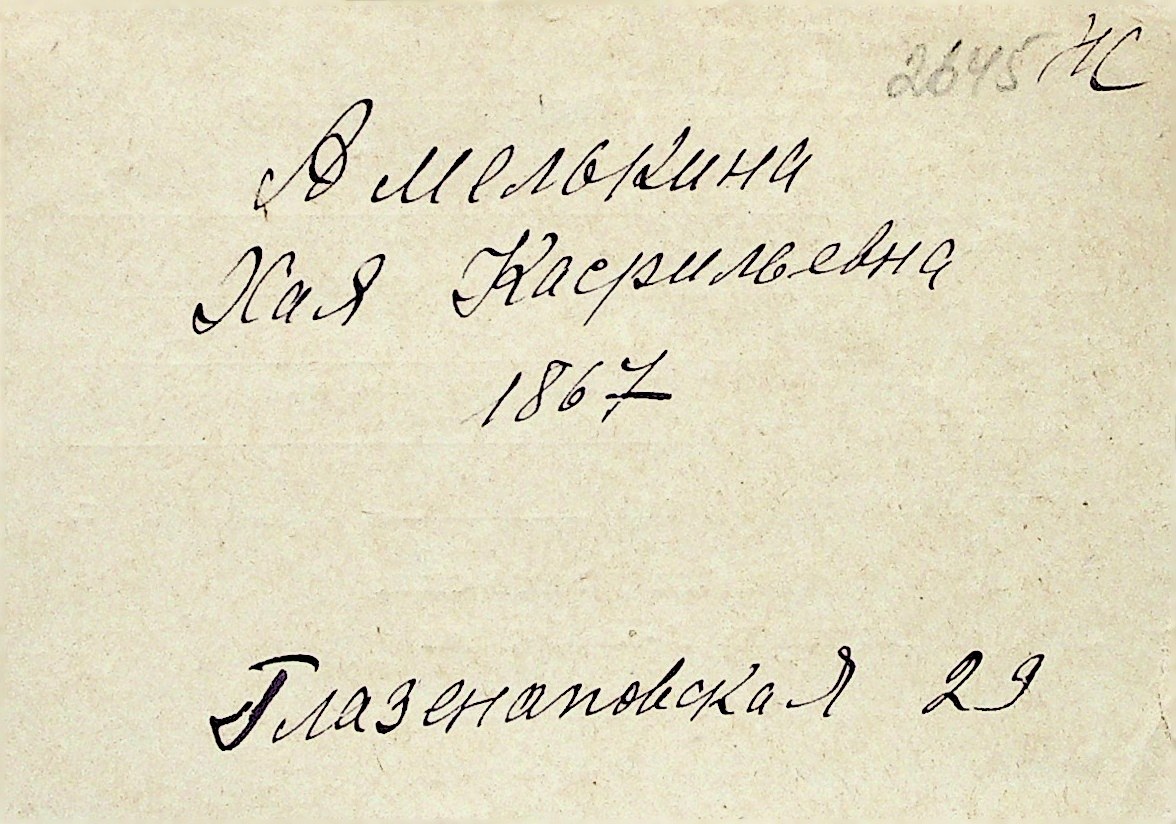 2645 Ж
Амелькина
Хая Касрильевна
1867
Глазенаповская 29